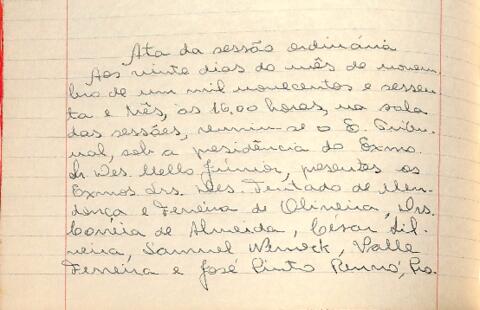 Ata da sessão ordinária
Aos vinte dias do mês de novem-
bro de um mil novecentos e sessen-
ta e três, às 16,00 horas, na sala
das sessões, reuniu-se o E. Tribu-
nal, sob a presidência do Exmo.
Sr. Des. Mello Júnior, presentes os
Exmos. drs. Des. Furtado de Men-
donça e Ferreira de Oliveira, Drs.
Corrêia de Almeida, César Sil-
veira, Samuel Werneck, Valle
Ferreira e José Pinto Renno,